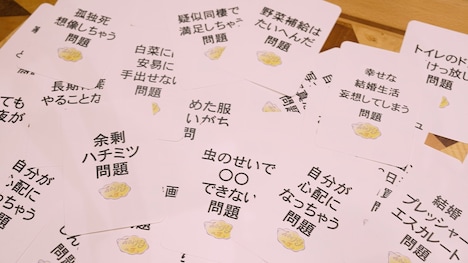 孤独死
想像しちゃう
問題
疑似同棲で
満足しちゃう
問題
野菜補給は
たいへんだ
問題
トイレのド
けっ放し
問題
白菜に
安易に
手出せない
問題
幸せな
結婚生活
妄想してしまう
問題
長期に
やることな
ても
夜が
めた服
いがち
題
余剰
ハチミツ
問題
虫のせいで
〇〇
できない
問題
自分が
心配に
なっちゃう
問題
自分が
心配に
なっちゃう
問題
結婚
プレッシャー
エスカレート
問題
画